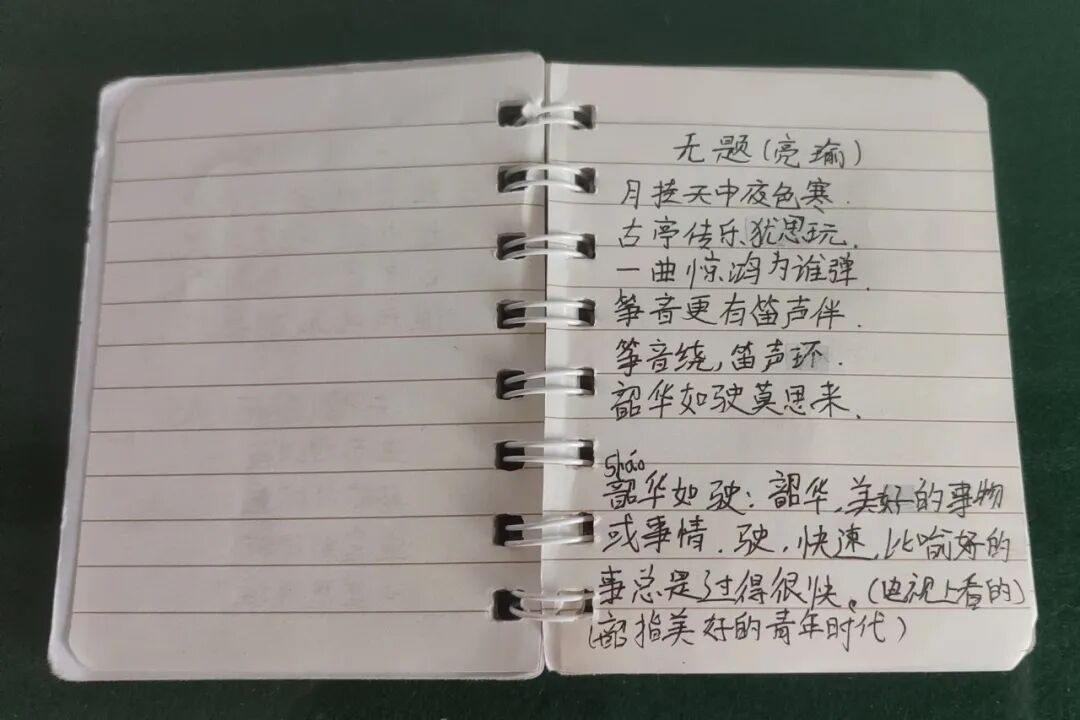 无题(亮瑜)
月挂天中夜色寒.
古亭传乐犹思玩.
一曲惊鸿为谁弹.
筝音更有笛声伴.
筝音绕,笛声环.
韶华如驶莫思来.
sháo
韶华如驶:韶华,美好的事物
或事情.驶,快速,比喻好的
事总是过得很快。(电视上看的)
(韶指美好的青年时代)